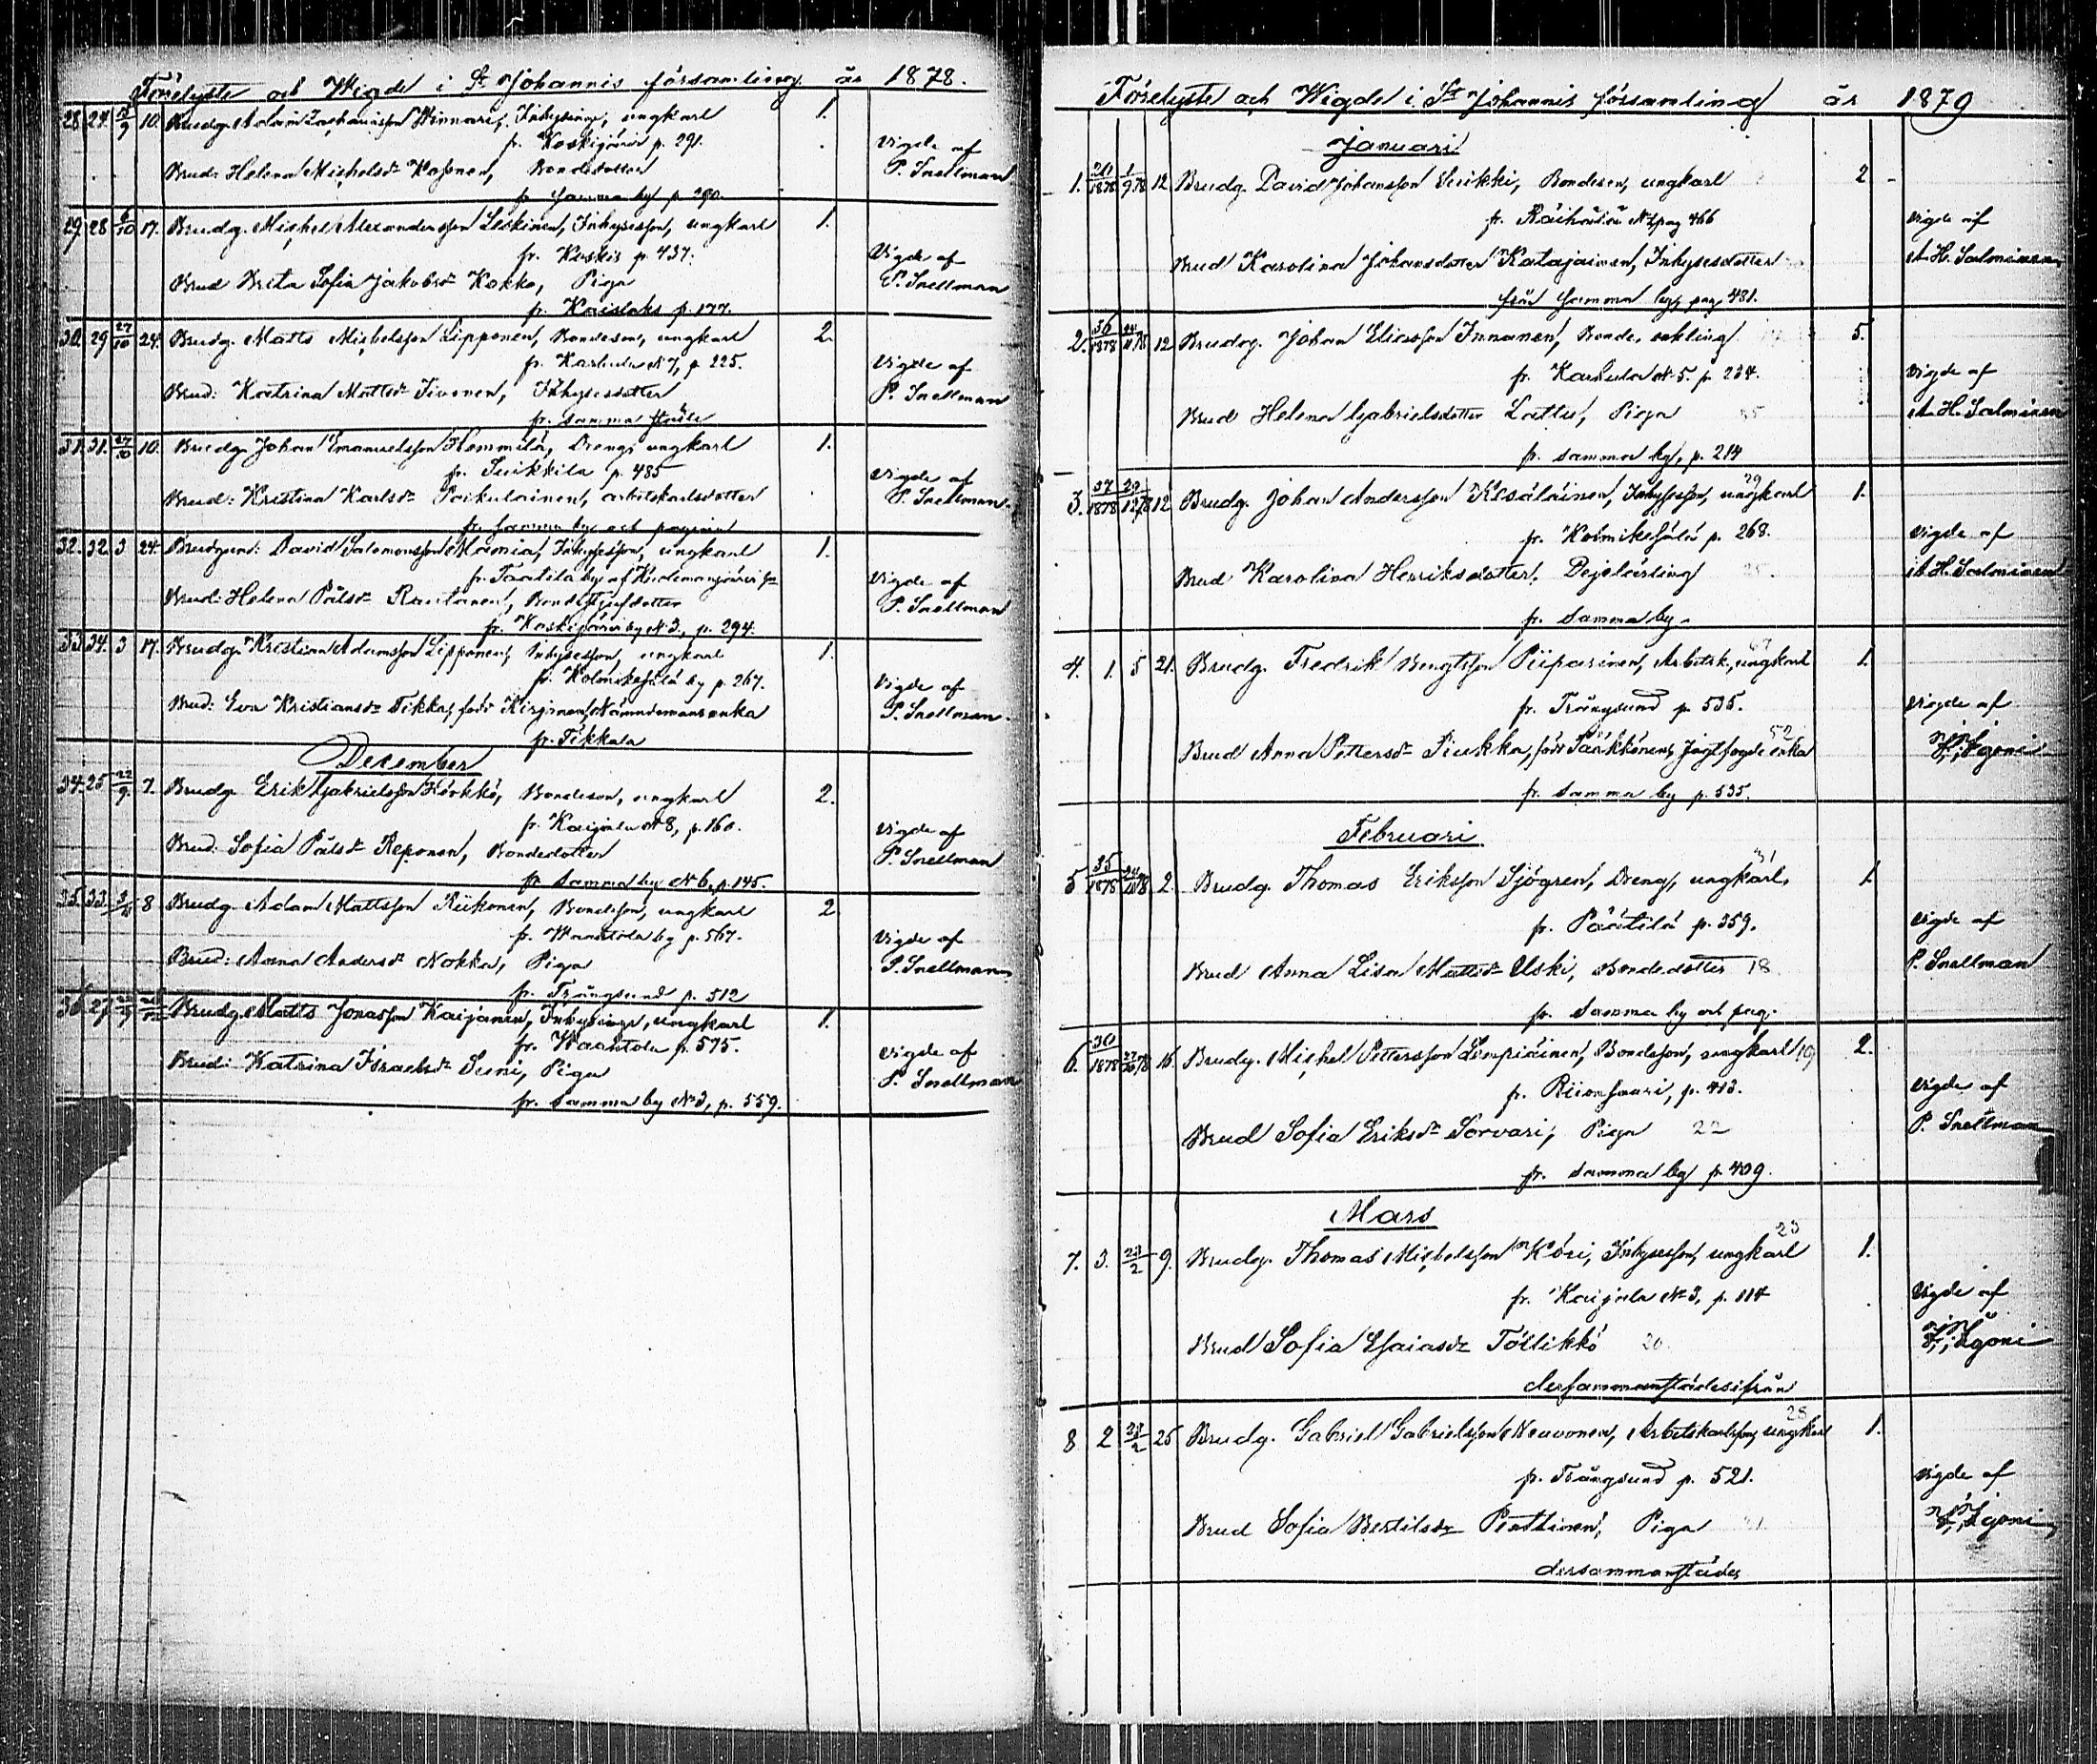 Förelyste och Wigde i St Johannis församling år 1878.
28. 24. 15/9 10. Brudg. Adam Zachariasson Winnari, Inhysing, ungkarl 1.
fr. Koskijärvi p. 291. Vigde af
Brud: Helena Michelsdr Kosonen, Bondedotter P. Snellman
fr. samma by p. 290.
29. 28 6/10 17. Brudg. Michel Alexandersson Leskinen, Inhysesson, ungkarl 1.
fr. Kaskis p. 437. Vigde af
Brud Brita Sofia Jakobsdr Kokko, Piga P. Snellman
fr. Kaislaks p. 177.
30. 29 27/10 24. Brudg. Matts Michelsson Lipponen, Bondeson, ungkarl 2.
fr. Karhula N 7, p. 225. Vigde af
Brud: Katrina Mattsdr Sivonen, Inhysesdotter P. Snellman
fr. samma ställe
31. 31. 27/10 10. Brudg. Johan Emanuelsson Hemmilä, Dreng, ungkarl 1.
fr. Suikkila p. 485 Vigde af
Brud: Kristina Karlsdr Paikulainen, arbetskarlsdotter P. Snellman.
fr. samma by och pagina
32. 32. 3 24. Brudgum: David Salomonsson Mamia, Inhysesson, ungkarl 1.
fr. Taatila by af Kuolemanjärvi fg Vigde af
Brud: Helena Pålsdr Rautanen, Bondestjufdotter P. Snellman
fr. Koskijärvi by N 3, p. 294.
33. 34. 3 17. Brudg. Kristian Adamsson Lipponen, Inhysesson, ungkarl 1.
fr. Kolmikesälä by p. 267. Vigde af
Brud: Eva Kristiansdr Tikka, född Kirjonen, Nämndemansenka P. Snellman.
fr. Tikkala
December
34. 25 22/9 7. Brudg. Erik Gabrielsson Körkkö, Bondeson, ungkarl 2.
fr. Kaijala N 8, p. 160. Vigde af
Brud: Sofia Pålsdr Reponen, Bondedotter P. Snellman
fr. samma by N 6, p. 145.
35. 33. 8 Brudg. Adam Mattsson Riikonen, Bondeson, ungkarl 2
fr. Waahtola by p. 567. Vigde af
Brud: Anna Andersdr Nokka, Piga P. Snellman
fr. Trångsund p. 512
36 27 Brudg. Matts Jonasson Kaijanen, Inhysing, ungkarl 1.
fr. Waahtola p. 575. Vigde af
Brud: Katrina Israelsdr Suni, Piga P. Snellman
fr. samma by N 3, p. 559.
Förelyste och Wigde i St Johannis församling år 1879
Januari
1. 1878 1/9 78 12 Brudg. David Johansson Suikki, Bondeson, ungkarl 2
fr. Räihälä N pag 466 Vigde af
Brud Karolina Johansdotter Katajainen, Inhysesdotter A. H. Salminen
från samma by, pag 481.
2. 36/1878 24/11 78 12 Brudg. Johan Eliasson Innanen, Bonde, enkling 5.
fr. Karhula N 5. p. 234. Vigde af
Brud Helena Gabrielsdotter Lattu, Piga 35 A. H. Salminen
fr. samma by, p. 214
3. 37/1878 29/12 78 12 Brudg. Johan Andersson Kesäläinen, Inhysesson, ungkarl 29 1.
fr. Kolmikesälä p. 268. Vigde af
Brud Karolina Henriksdotter, Dejelärling A. H. Salminen
fr. samma by.
4. 1. 5 21. Brudg. Fredrik Bengtsson Piiparinen, Arbetsk., ungkarl 67 1.
fr. Trångsund p. 535. Vigde af
Brud Anna Pettersdr Piukka, född Pärkkönen, Jagtfogde enka 52 Igoni
fr. samma by p. 535.
Februari
5 35/1878 2. Brudg. Thomas Eriksson Sjögren, Dreng, ungkarl, 31 1.
fr. Päätilä p. 359. Vigde af
Brud Anna Lisa Mattsdr Uski, Bondedotter 18 P. Snellman
fr. samma by och pag.
6. 30/1878 16. Brudg. Michel Pettersson Lempiäinen, Bondeson, ungkarl 19 2.
fr. Riionsaari, p. 413. Vigde af
Brud Sofia Eriksdr Sorvari, Piga 22 P. Snellman
fr. samma by p. 409.
Mars
7. 3. 23/2 9. Brudg. Thomas Michelsson Köri, Inhysesson, ungkarl 23 1.
fr. Kaijala N 3, p. 114 Vigde af
Brud Sofia Esaiasdr Töllikkö 20 Igoni
dersammanstädesifrån
8 2 23/2 25 Brudg. Gabriel Gabrielsson Neuvonen, Arbetskarlsson, ungkarl 28 1.
fr. Trångsund p. 521. Vigde af
Brud Sofia Bertilsdr Penttinen, Piga Igoni
dersammanstädes